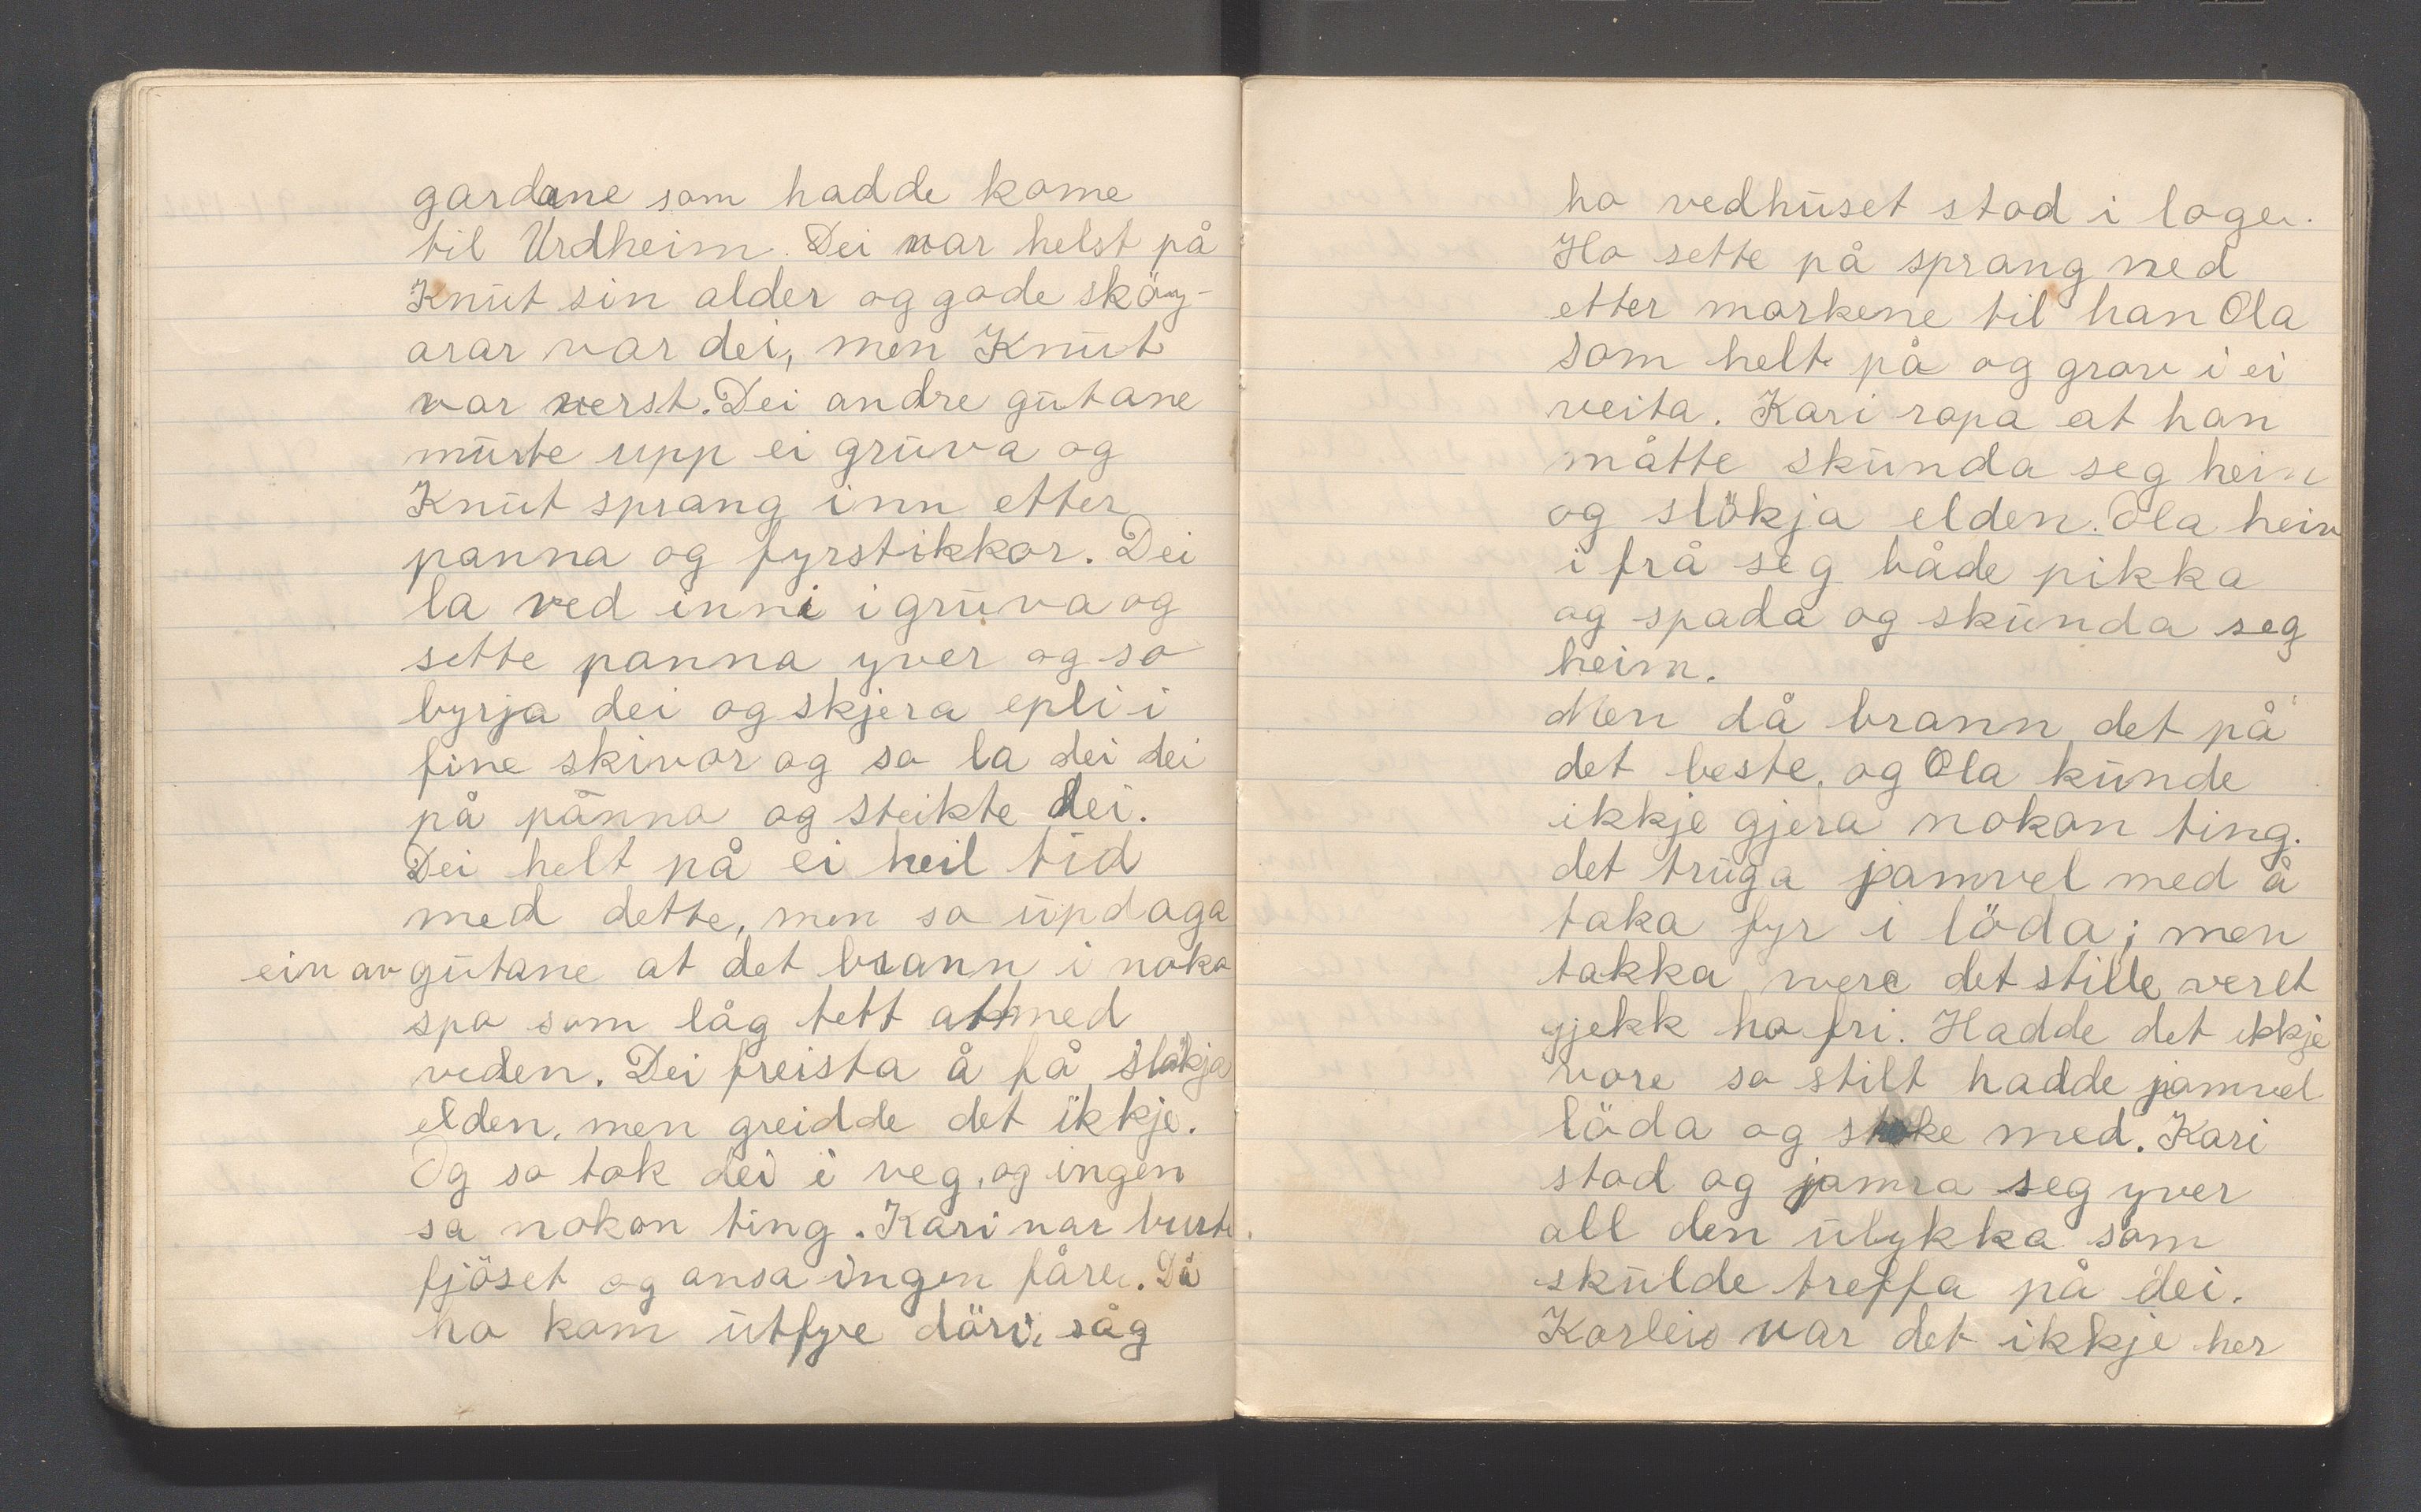 gardane som hadde kome
til Urdheim. Dei var helst på
Knut sin alder og gode sköy-
arar var dei, men Knut
var verst. Dei andre gutane
murte upp ei gruva og
Knut sprang inn etter
panna og fyrstikkor. Dei
la ved inni i gruva og
sette panna yver og so
byrja dei og skjera epli i
fine skivor og so la dei dei
på panna og steikte dei.
Dei helt på ei heil tid
med dette, men so updaga
ein av gutane at det brann i noko
spo som låg tett attmed
veden. Dei freista å få slökja
elden, men greidde det ikkje.
Og so tok dei i veg, og ingen
sa nokon ting. Kari var burte
fjöset og ansa ingen fåre. Då
ho kom utfyre döri, såg
ho vedhuset stod i loge.
Ho sette på sprang ned
etter markene til han Ola
som helt på og grov i ei
veita. Kari ropa at han
måtte skunda seg heim
og slökja elden. Ola heiv
i frå seg både pikka
og spada og skunda seg
heim.
Men då brann det på
det beste, og Ola kunde
ikkje gjera nokon ting.
det truga jamvel med å
taka fyr i löda; men
takka vere det stille veret
gjekk ho fri. Hadde det ikkje
vore so stilt hadde jamvel
löda og stroke med. Kari
stod og jamra seg yver
all den ulykka som
skulde treffa på dei.
Korleis var det ikkje her